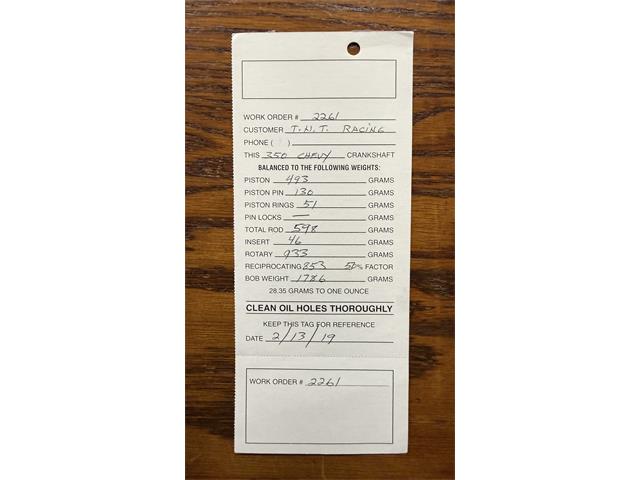 WORK ORDER # 2261
CUSTOMER T.N.T. RACING
PHONE ( )
THIS 350 CHEVY CRANKSHAFT
BALANCED TO THE FOLLOWING WEIGHTS:
PISTON 493 GRAMS
PISTON PIN 130 GRAMS
PISTON RINGS 51 GRAMS
PIN LOCKS — GRAMS
TOTAL ROD 598 GRAMS
INSERT 46 GRAMS
ROTARY 933 GRAMS
RECIPROCATING 853 50% FACTOR
BOB WEIGHT 1786 GRAMS
28.35 GRAMS TO ONE OUNCE
CLEAN OIL HOLES THOROUGHLY
KEEP THIS TAG FOR REFERENCE
DATE 2/13/19
WORK ORDER # 2261